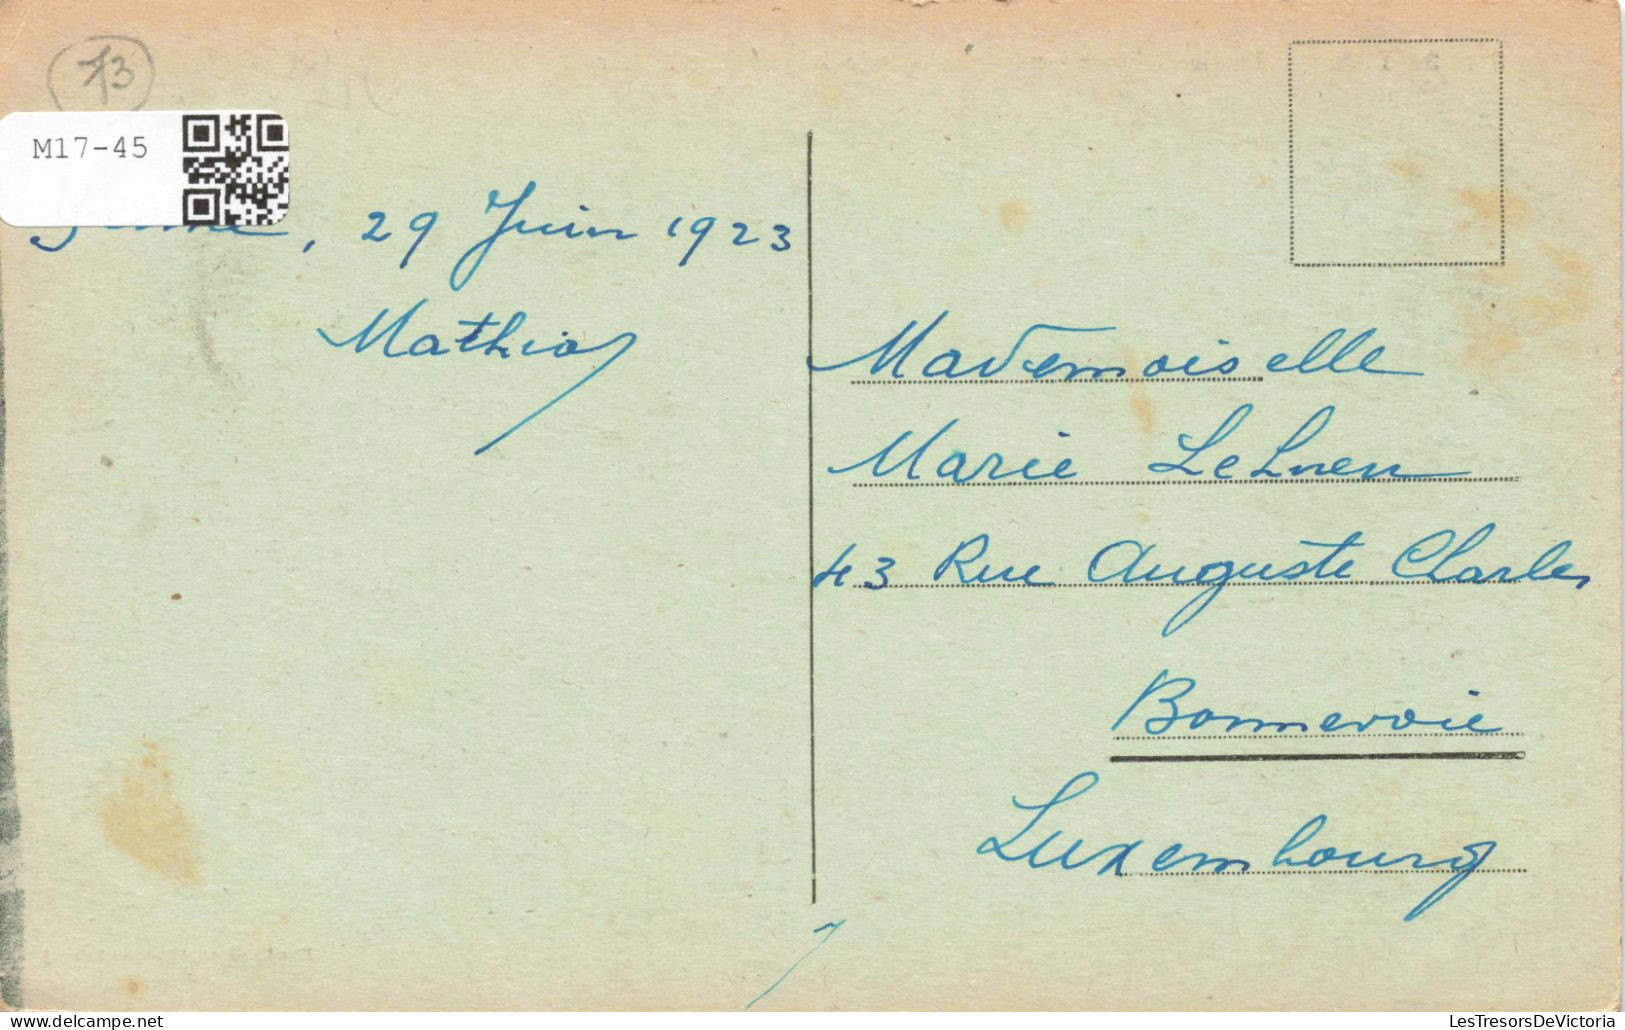 73
M17-45
, 29 Juin 1923
Mathias
Mademoiselle
Marie Lehnen
43 Rue Auguste Charles
Bonnevoie
Luxembourg
LesTresorsDeVictoria
www.delcampe.net